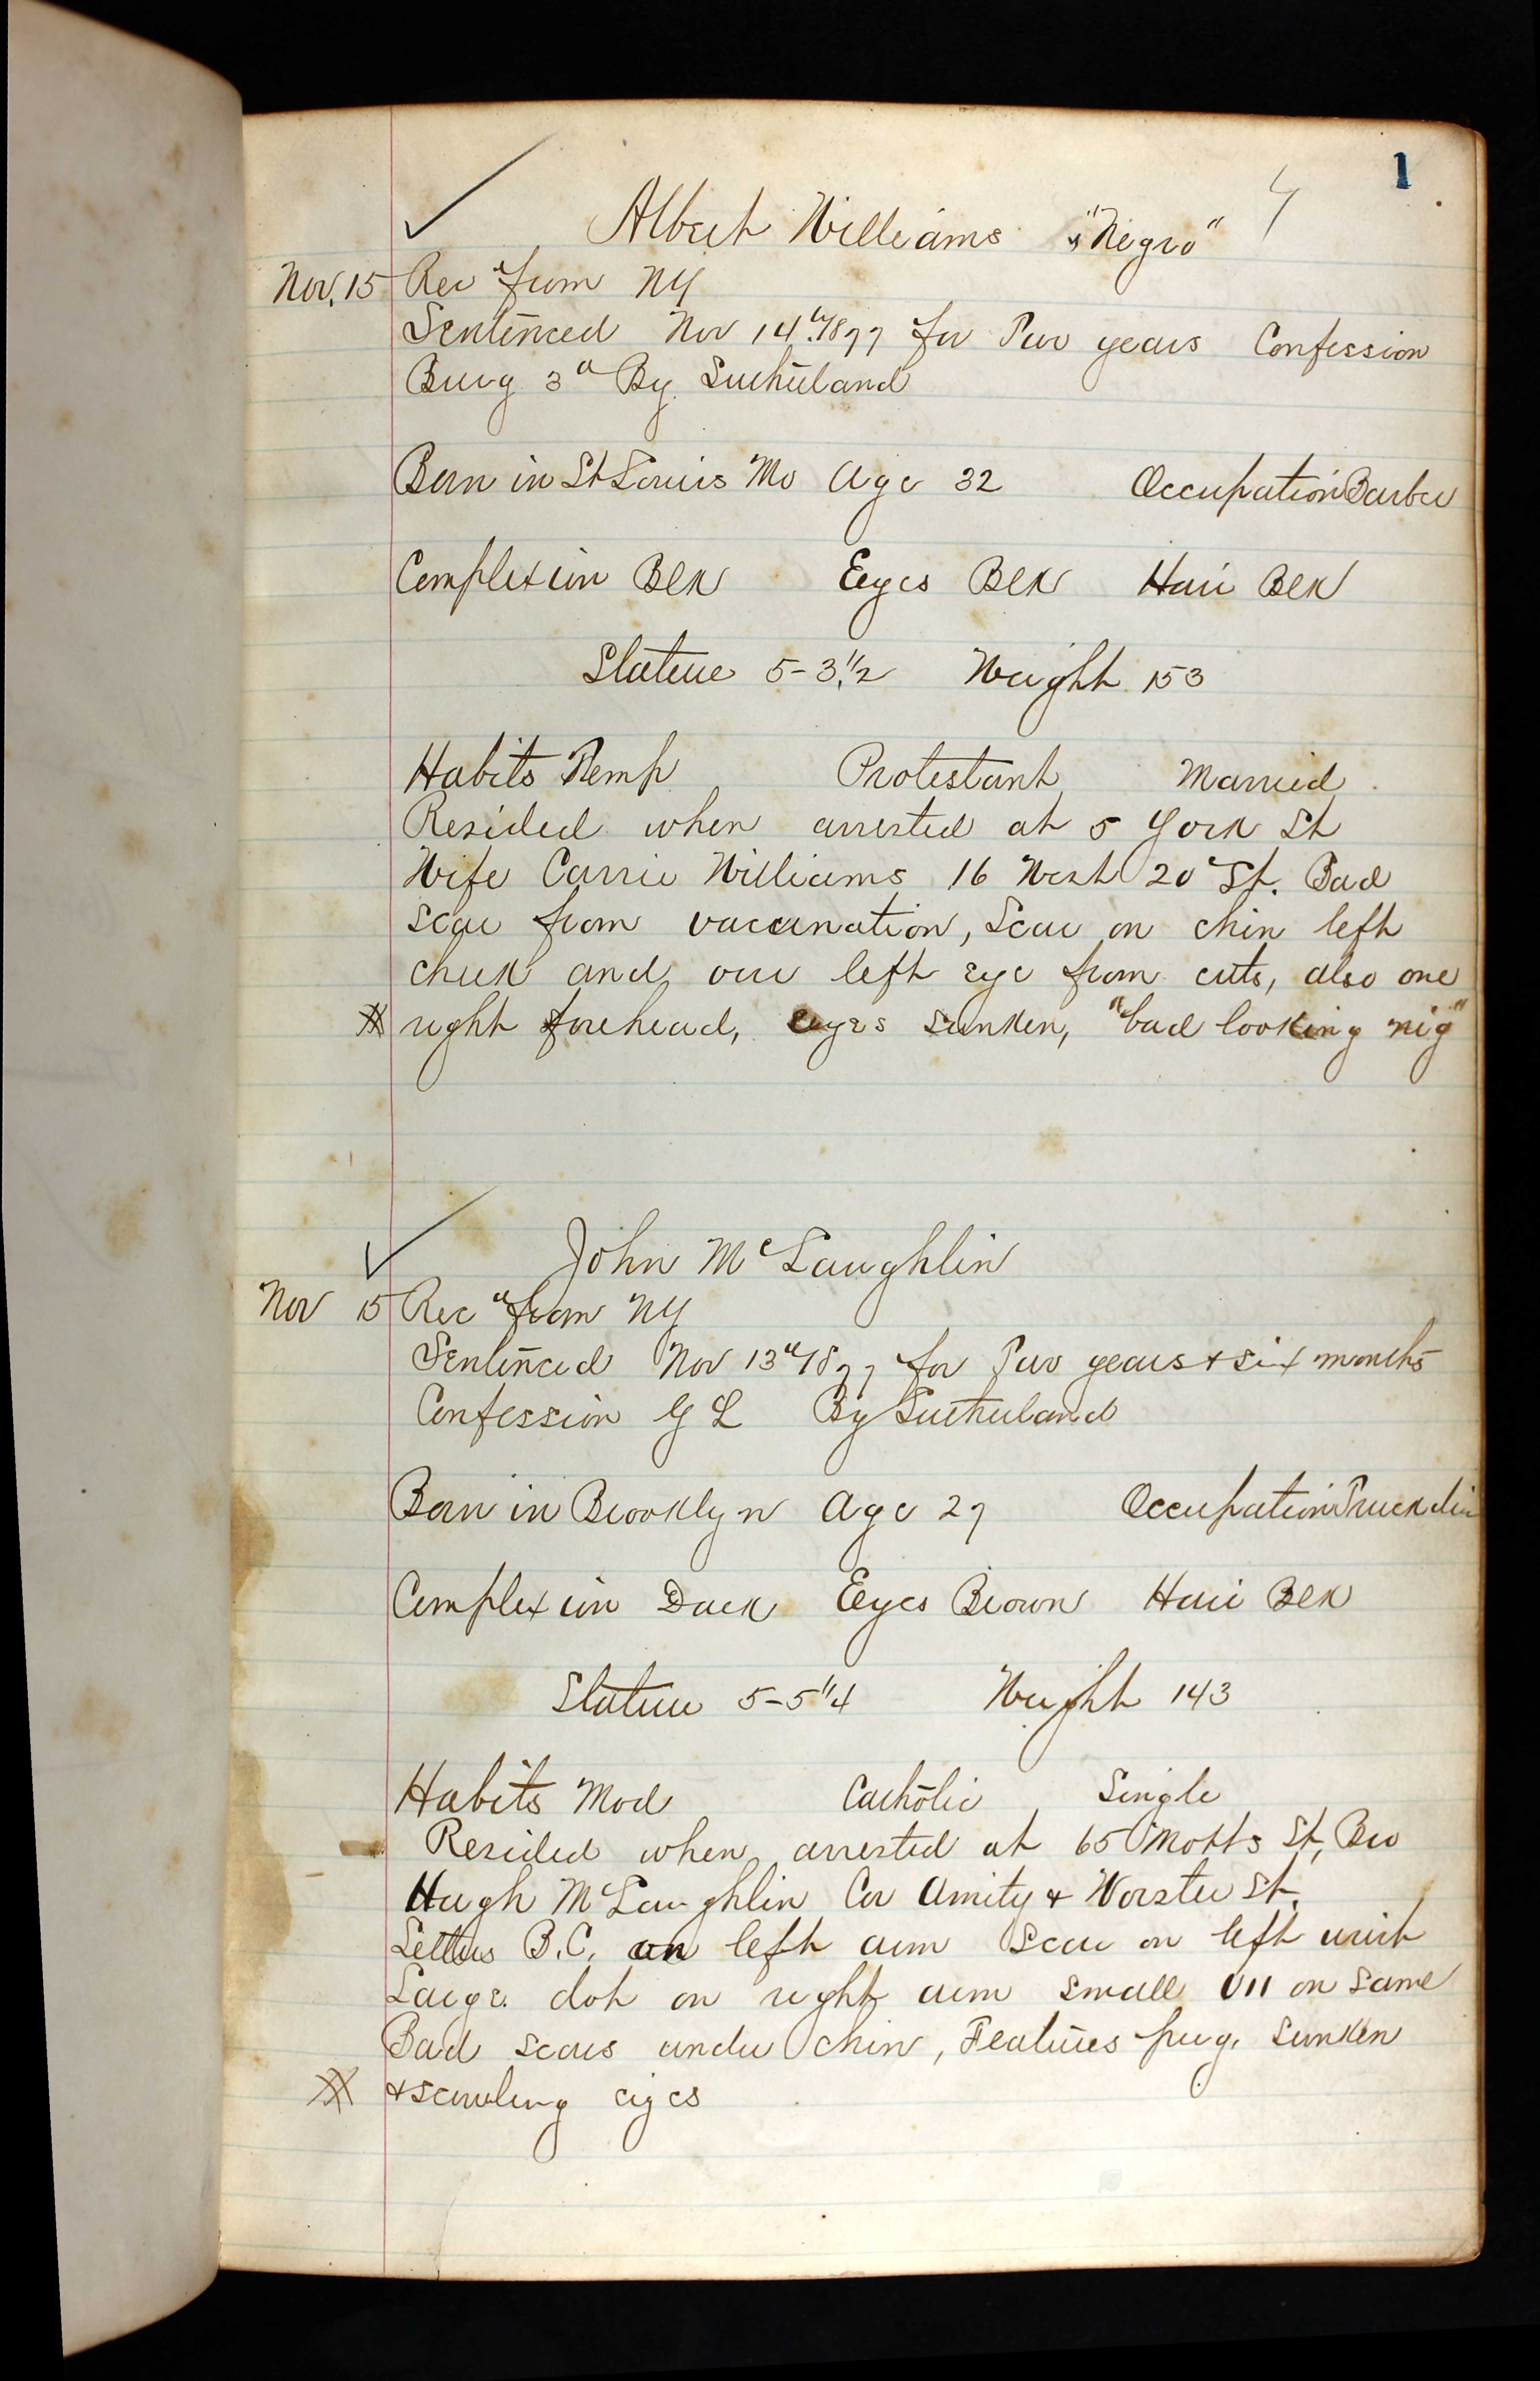 1
Albert Williams "Negro"
Nov. 15 Rec d from NY
Sentenced Nov 14th 1877 for Two years Confession
Burg 3d By Sutherland
Born in St Louis Mo Age 32 Occupation Barber
Complexion Blk Eyes Blk Hair Blk
Stature 5-3.1/2 Weight 153
Habits Temp Protestant Married
Resided when arrested at 5 York St
Wife Carrie Williams 16 West 20th St. Bad
scar from vaccination, Scar on chin left
cheek and over left eye from cuts, also one
right forehead, eyes sunken, "bad looking nig"
John McLaughlin
Nov 15 Rec d from NY
Sentenced Nov 13th 1877 for Two years & six months
Confession G L By Sutherland
Born in Brooklyn Age 27 Occupation
Complexion Dark Eyes Brown Hair Blk
Stature 5-5 1/4 Weight 143
Habits Mod Catholic Single
Resided when arrested at 65 Motts St, Bro
Hugh McLaughlin Cor Amity & Worster St.
Letters B.C. on left arm Scar on left wrist
Large dot on right arm small on same
Bad scars under chin, Features pug, sunken
& scowling eyes